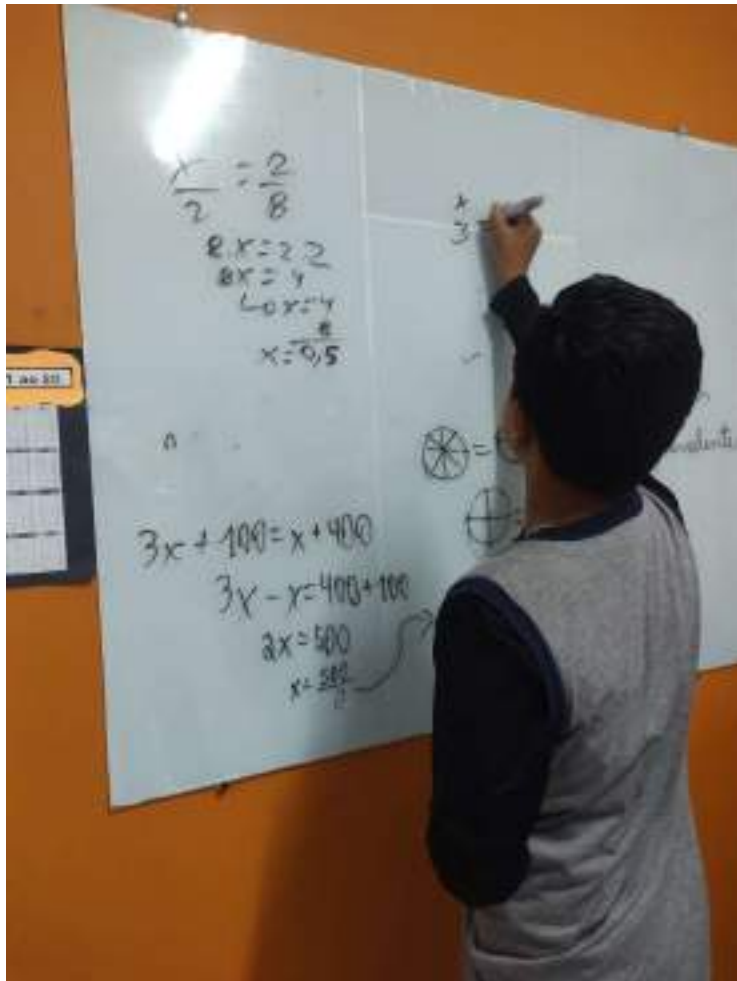 x/2 = 2/8
8.x=2.2
8x = 4
↳ x=4/8
x=0,5
3x + 100 = x + 400
3x - x = 400 + 100
2x = 500
x = 500
3
=